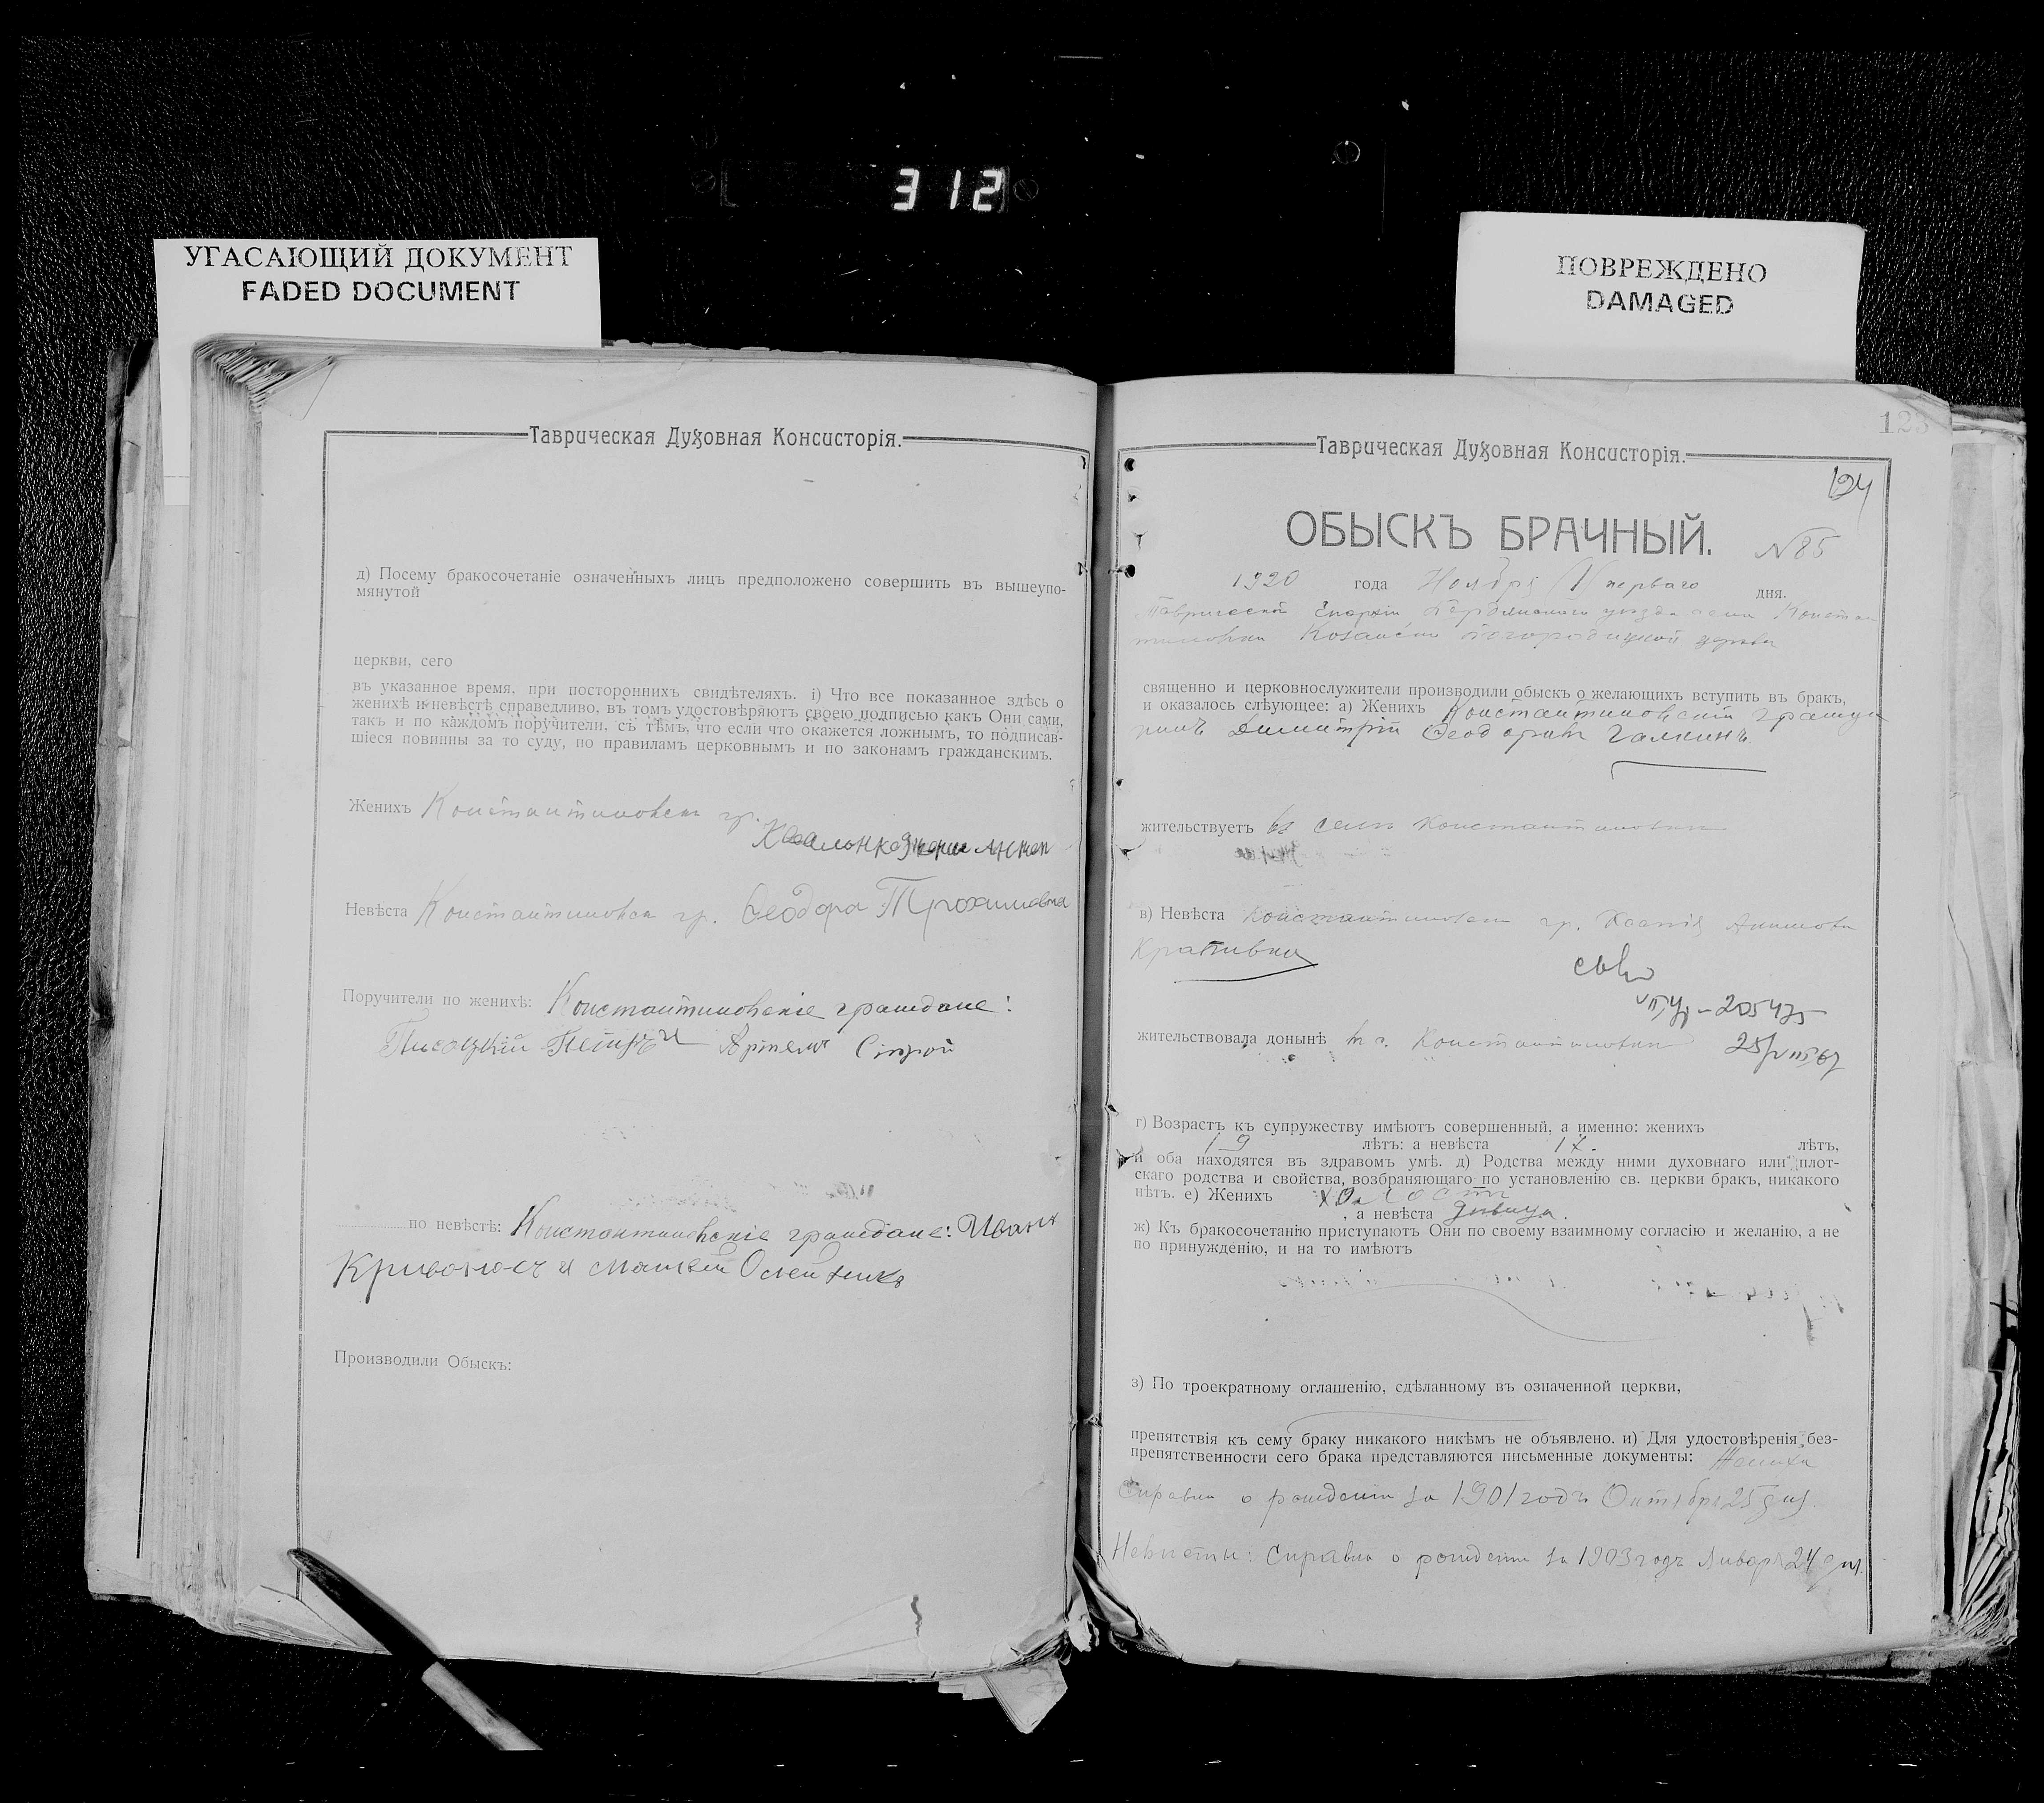 312
УГАСАЮЩИЙ ДОКУМЕНТ
FADED DOCUMENT
ПОВРЕЖДЕНО
DAMAGED
Таврическая Духовная Консисторія.
д) Посему бракосочетаніе означенныхъ лицъ предположено совершить въ вышеупо-
мянутой
церкви, сего
въ указанное время, при постороннихъ свидѣтеляхъ. і) Что все показанное здѣсь о
женихѣ и невѣстѣ справедливо, въ томъ удостовѣряютъ своею подписью какъ Они сами,
такъ и по каждомъ поручители, съ тѣмъ, что если что окажется ложнымъ, то подписав-
шіеся повинны за то суду, по правиламъ церковнымъ и по законамъ гражданскимъ.
Женихъ Константиновск гр.
Невѣста Константиновск гр. Ѳеодора Трохимовна
Поручители по женихѣ: Константиновскіе граждане:
Писоцкій Петръ и Артемъ Строй
по невѣстѣ: Константиновскіе граждане: Иванъ
Кривоносъ и Матвей Олейникъ
Производили Обыскъ:
123
Таврическая Духовная Консисторія.
124
ОБЫСКЪ БРАЧНЫЙ.
N 85
1920 года Ноября (1) перваго дня.
Таврической Епархіи Бердянскаго уѣзда села Констан
тиновки Казанско Богородицкой церкви
священно и церковнослужители производили обыскъ о желающихъ вступить въ бракъ,
и оказалось слѣующее: а) Женихъ Константиновскій гражда
нинъ Димитрій Ѳеодоровъ Галкинъ
жительствуетъ въ селѣ Константиновки
в) Невѣста Константиновск гр. Ксенія Акимова
Крапивка
205475
жительствовала донынѣ въ с. Константиновки
г) Возрастъ къ супружеству имѣютъ совершенный, а именно: женихъ
19 лѣтъ: а невѣста лѣтъ,
и оба находятся въ здравомъ умѣ. д) Родства между ними духовнаго или плот-
скаго родства и свойства, возбраняющаго по установленію св. церкви бракъ, никакого
нѣтъ. е) Женихъ холостъ
, а невѣста дѣвица.
ж) Къ бракосочетанію приступаютъ Они по своему взаимному согласію и желанію, а не
по принужденію, и на то имѣютъ
з) По троекратному оглашенію, сдѣланному въ означенной церкви,
препятствія къ сему браку никакого никѣмъ не объявлено. и) Для удостовѣренія без-
препятственности сего брака представляются письменные документы: Жениха
Справка о рожденіи за 1901 годъ Октября 25 дня.
Невисты: Справка о рождении за 1903 годъ Января 24 дня.